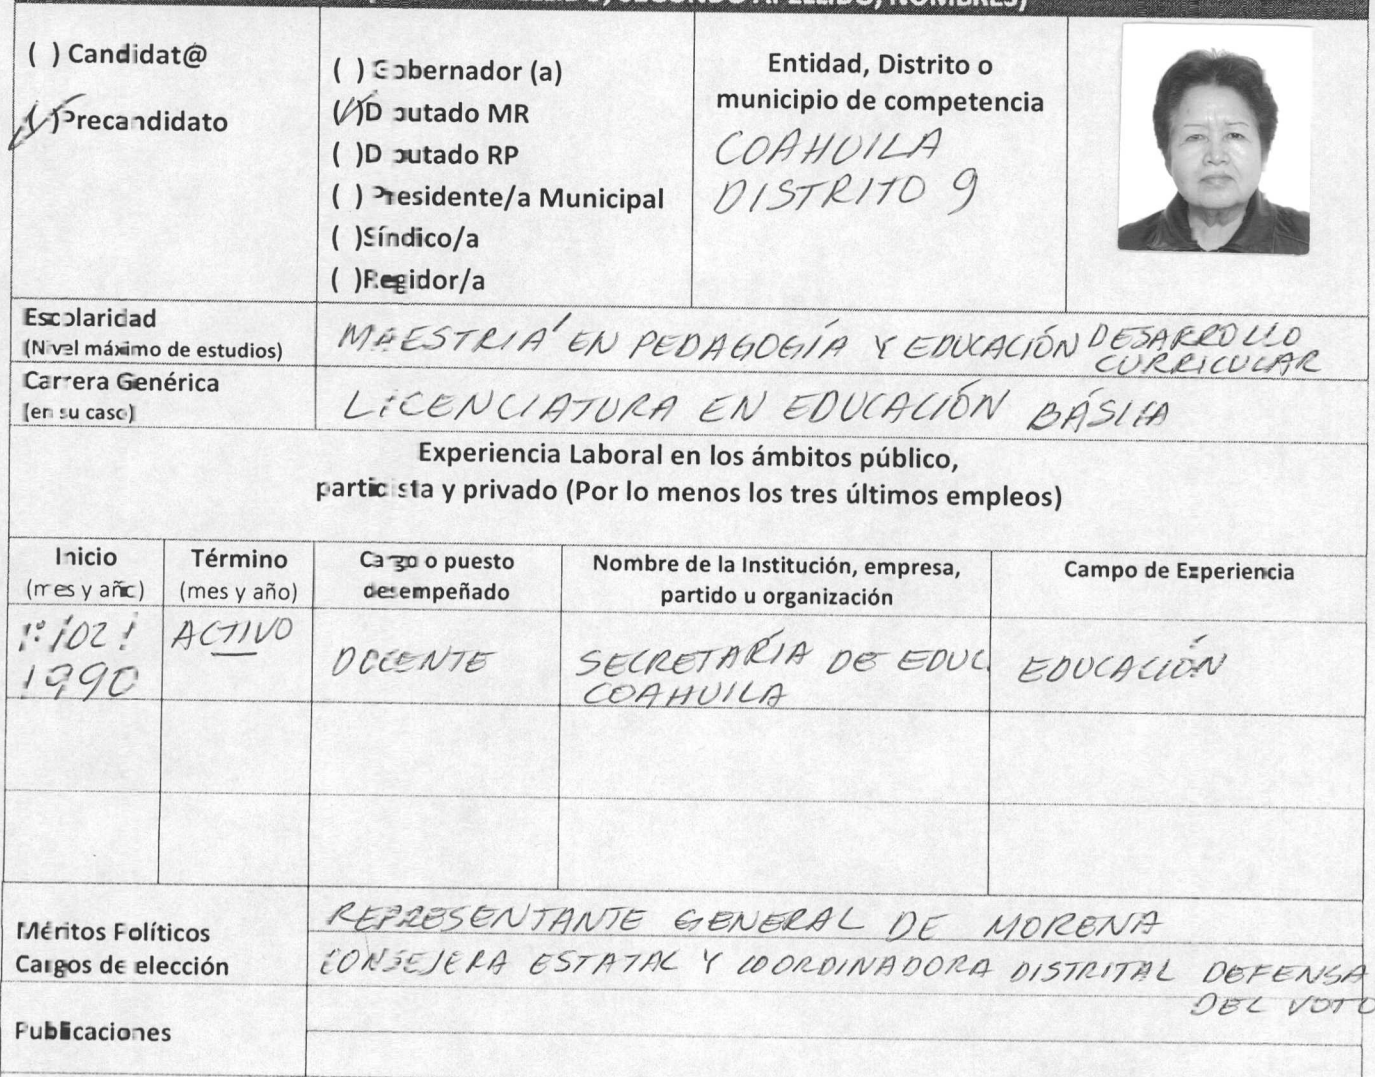 SEGUNDO APELLIDO, NOMBRES)
( ) Candidat@
(✓) Precandidato
( ) Gobernador (a)
(✓)Diputado MR
( )Diputado RP
( ) Presidente/a Municipal
( )Síndico/a
( )Regidor/a
Entidad, Distrito o
municipio de competencia
COAHUILA
DISTRITO 9
Escolaridad
(Nivel máximo de estudios)
MAESTRIA EN PEDAGOGÍA Y EDUCACIÓN DESARROLLO
CURRICULAR
Carrera Genérica
(en su caso)
LICENCIATURA EN EDUCACIÓN BÁSICA
Experiencia Laboral en los ámbitos público,
partidista y privado (Por lo menos los tres últimos empleos)
Inicio
(mes y año)
Término
(mes y año)
Cargo o puesto
desempeñado
Nombre de la Institución, empresa,
partido u organización
Campo de Experiencia
1º/02/
1990
ACTIVO
DOCENTE
SECRETARÍA DE EDUC.
COAHUILA
EDUCACIÓN
Méritos Políticos
Cargos de elección
REPRESENTANTE GENERAL DE MORENA
CONSEJERA ESTATAL Y COORDINADORA DISTRITAL DEFENSA
DEL VOTO
Publicaciones